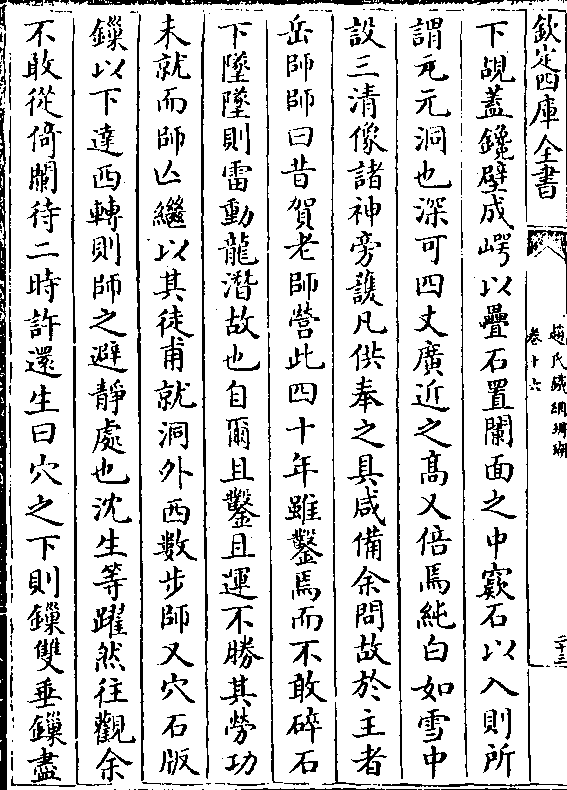 欽定四庫全書
趙氏鐵網珊瑚
卷十六
二十三
下覘蓋鑱壁成崿以疊石置闌面之中竅石以入則所
謂朝元洞也深可四丈廣近之髙又倍焉純白如雪中
設三清像諸神旁護凡供奉之具咸備余問故於主者
岳師師曰昔賀老師營此四十年雖鑿焉而不敢碎石
下墜墜則雷動龍潛故也自爾且鑿且運不勝其勞功
未就而師亾繼以其徒甫就洞外西數步師又穴石版
鏁以下達西轉則師之避靜處也沈生等躍然往觀余
不敢從倚闌待二時許還生曰穴之下則鏁雙垂鏁盡